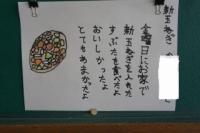 新玉ねぎ
金曜日にお家で
新玉ねぎを入れた
すぶたを食べたよ
おいしかったよ
とてもあまかったよ